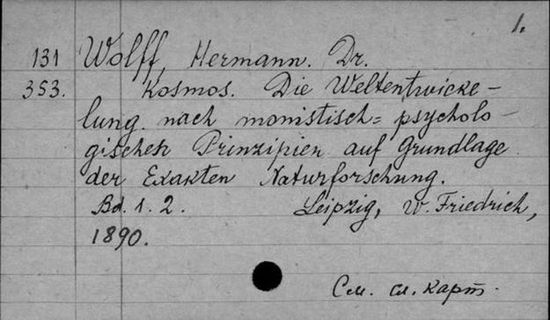 1.
131 Wolff, Hermann. Dr.
353. Kosmos. Die Weltentwicke-
lung nach monistisch= psycholo-
gischen Prinzipien auf Grundlage
der Exakten Naturforschung.
Bd. 1. 2. Leipzig, W. Friedrich,
1890.
См. сл. карт.